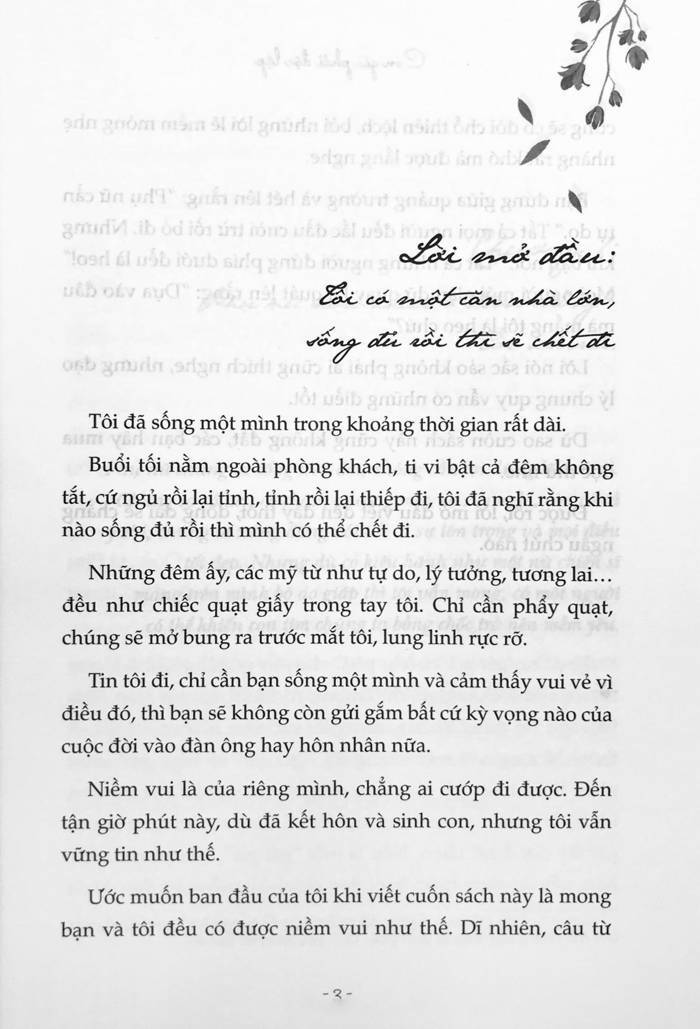 Lời mở đầu:
Tôi có một căn nhà lớn,
sống đủ rồi thì sẽ chết đi
Tôi đã sống một mình trong khoảng thời gian rất dài.
Buổi tối nằm ngoài phòng khách, ti vi bật cả đêm không
tắt, cứ ngủ rồi lại tỉnh, tỉnh rồi lại thiếp đi, tôi đã nghĩ rằng khi
nào sống đủ rồi thì mình có thể chết đi.
Những đêm ấy, các mỹ từ như tự do, lý tưởng, tương lai...
đều như chiếc quạt giấy trong tay tôi. Chỉ cần phẩy quạt,
chúng sẽ mở bung ra trước mắt tôi, lung linh rực rỡ.
Tin tôi đi, chỉ cần bạn sống một mình và cảm thấy vui vẻ vì
điều đó, thì bạn sẽ không còn gửi gắm bất cứ kỳ vọng nào của
cuộc đời vào đàn ông hay hôn nhân nữa.
Niềm vui là của riêng mình, chẳng ai cướp đi được. Đến
tận giờ phút này, dù đã kết hôn và sinh con, nhưng tôi vẫn
vững tin như thế.
Ước muốn ban đầu của tôi khi viết cuốn sách này là mong
bạn và tôi đều có được niềm vui như thế. Dĩ nhiên, câu từ
- 3 -